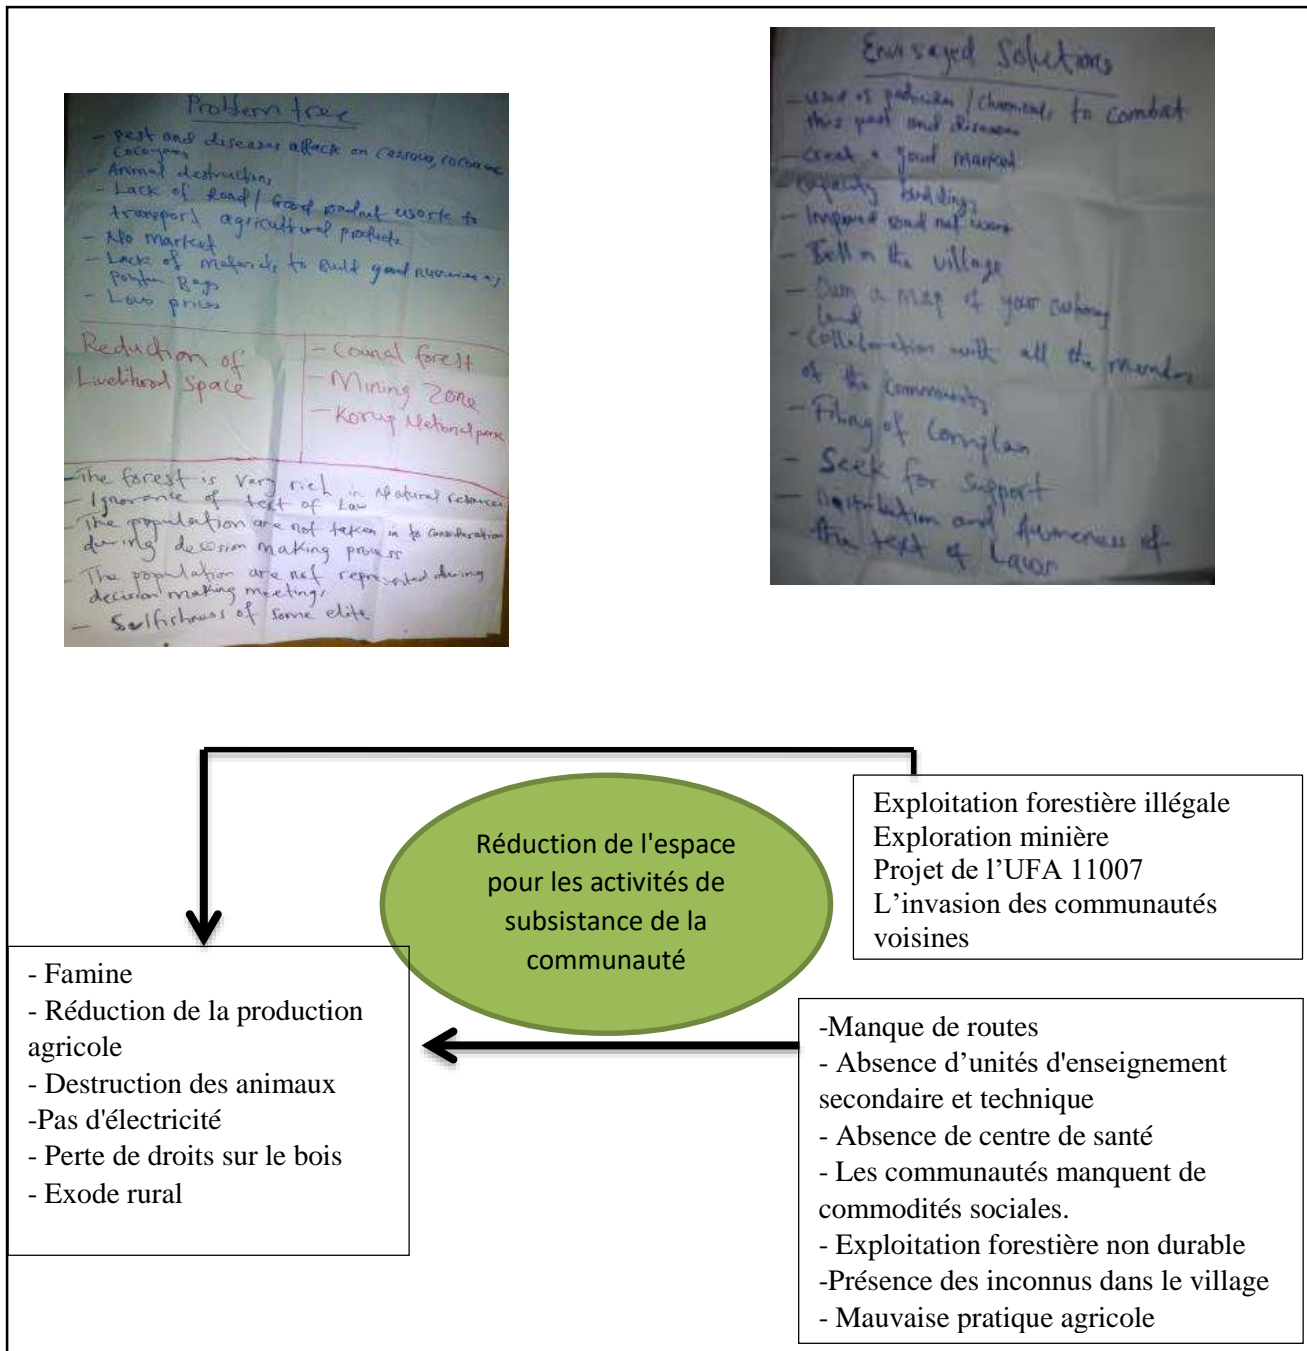 Problem tree
- pest and diseases attack on cassava, cocoa and
cocoyams
- Animal destruction,
- Lack of Road / Good network to
transport agricultural products
- No market
- Lack of materials to Build good nurseries as
Bags
- Low prices
Reduction of
Livelihood Space
- Counal forest
- Mining Zone
- Korup National park
- The forest is very rich in Natural resources
- Ignorance of text of Law
- The population are not taken in to consideration
during decision making process
- The population are not represented during
decision making meetings
- Selfishness of some elite
Envisaged Solutions
- use of pesticides / chemicals to combat
this pest and diseases
- creat a good market
- capacity buildings
- Improved road net work
- Bell in the village
- Own a map of your
land
- Collaboration with all the
of the community
- Filing of Complain
- Seek for Support
- and Awareness of
the text of Laws
Réduction de l'espace
pour les activités de
subsistance de la
communauté
Exploitation forestière illégale
Exploration minière
Projet de l’UFA 11007
L’invasion des communautés
voisines
- Famine
- Réduction de la production
agricole
- Destruction des animaux
-Pas d'électricité
- Perte de droits sur le bois
- Exode rural
-Manque de routes
- Absence d’unités d'enseignement
secondaire et technique
- Absence de centre de santé
- Les communautés manquent de
commodités sociales.
- Exploitation forestière non durable
-Présence des inconnus dans le village
- Mauvaise pratique agricole